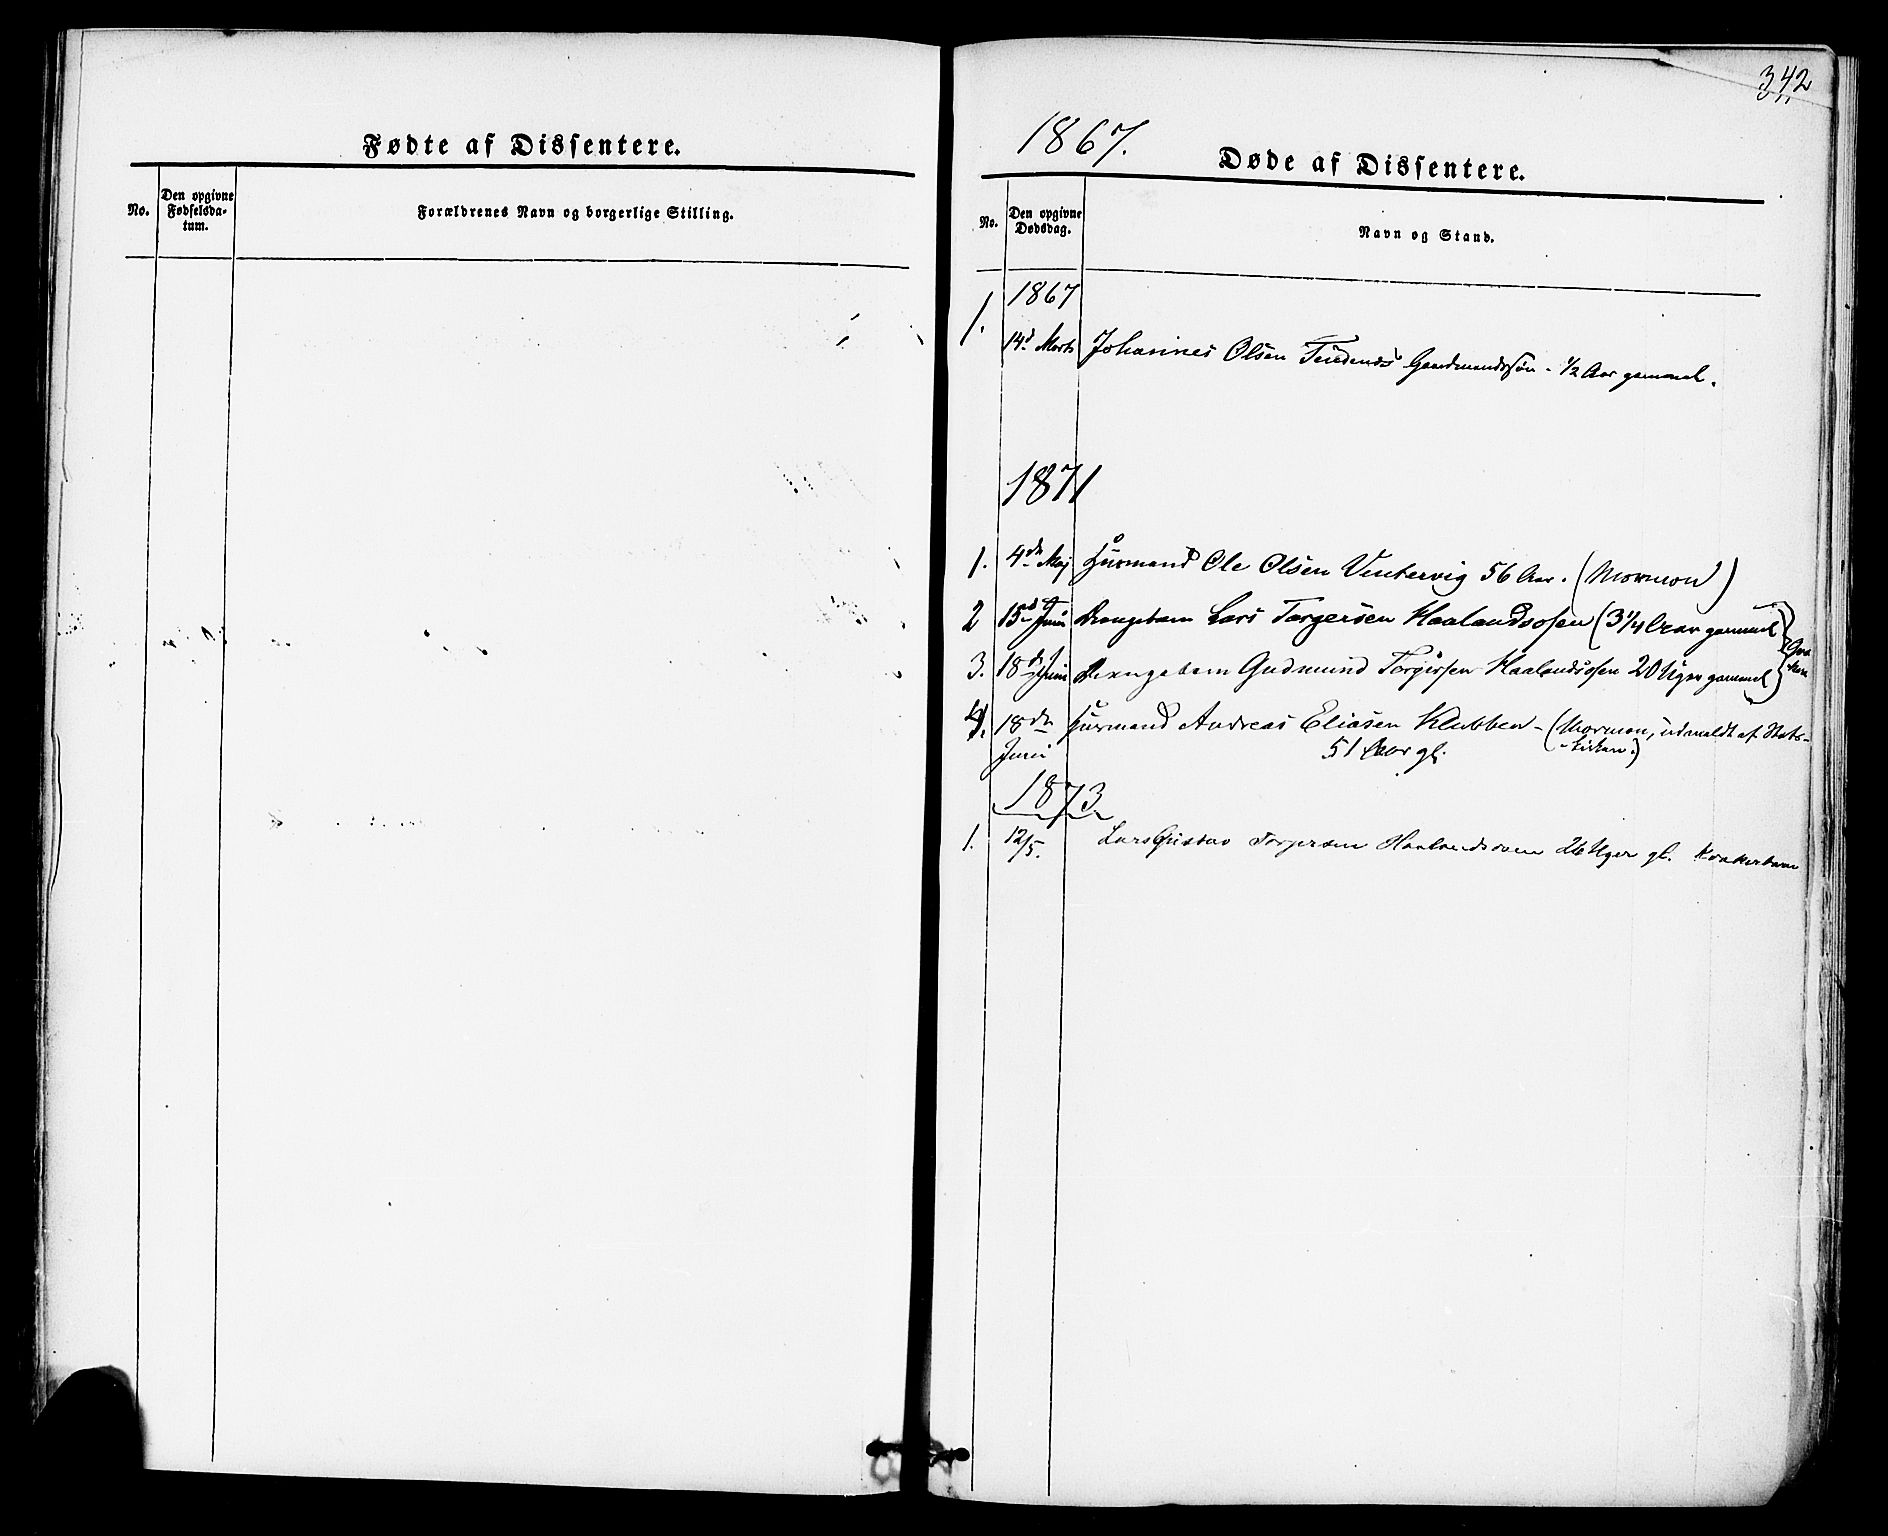 Fødte af Dissentere.
No.
Den opgivne
Fødselsda-
tum.
Forældrenes Navn og borgerlige Stilling.
342
1867.
Døde af Dissentere.
No.
Den opgivne
Dødsdag.
Navn og Stand.
1867
1. 14d Marts Johannes Olsen Gaardmandssøn - 1/2 Aar gammel.
1871
1. 4de Maj Huusmand Ole Olsen Vintervig 56 Aar. (Mormon)
2 15d Juni Drengebarn Lars Torgersen Haalandsosen (3 1/4 Aar gammel)
3. 18d Juni Drengebarn Gudmund Torgersen Haalandsosen 20 Uger gammel
4. 18de Juni Huusmand Andreas Eliasen Klubben - (Mormon, udmeldt af Stats-
-kirken.)
51 Aar gl.
1873
1. 12/5. Lars Gustav Torgersen Haalandsosen 26 Uger gl. Kvækerbarn